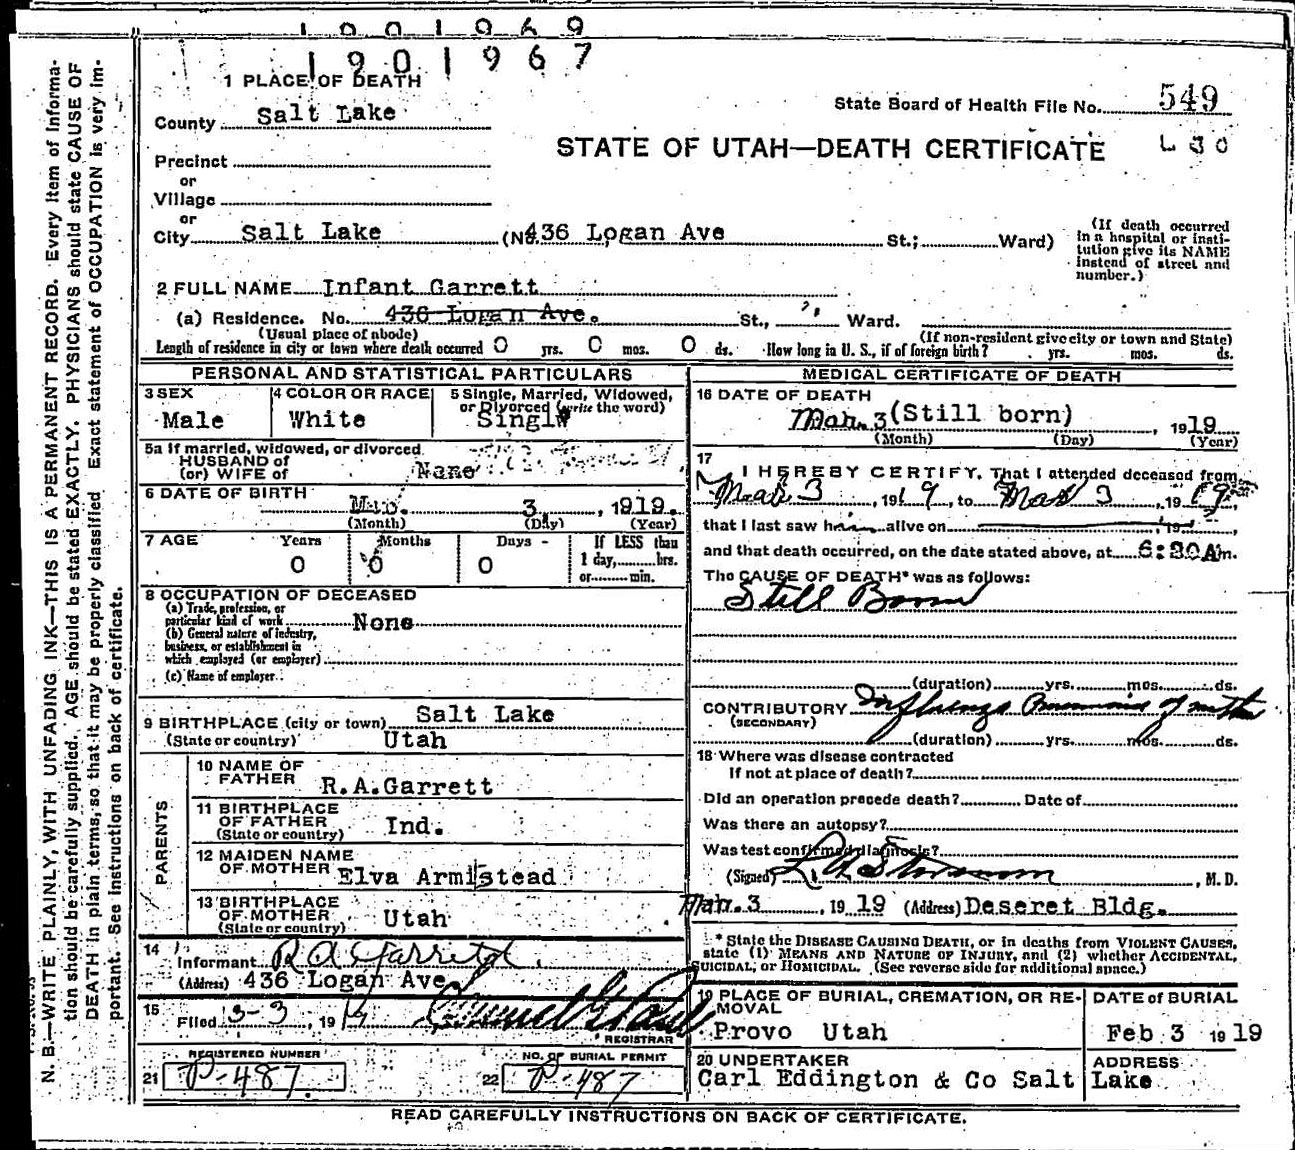 1901969
1901967
1 PLACE OF DEATH
State Board of Health File No. 549
County Salt Lake
STATE OF UTAH—DEATH CERTIFICATE
L 30
Precinct
or
Village
or
City Salt Lake (No. 436 Logan Ave St.; Ward)
(If death occurred in a hospital or insti-
tution give its NAME
instead of street and
number.)
2 FULL NAME Infant Garrett
(a) Residence. No. 436 Logan Ave. St., Ward.
(Usual place of abode) (If non-resident give city or town and State)
Length of residence in city or town where death occurred 0 yrs. 0 mos. 0 ds. How long in U. S., if of foreign birth? yrs. mos. ds.
PERSONAL AND STATISTICAL PARTICULARS
3 SEX 4 COLOR OR RACE 5 Single, Married, Widowed,
or Divorced (write the word)
Male White Singlw
5a If married, widowed, or divorced
HUSBAND of
(or) WIFE of None
6 DATE OF BIRTH
Mar. 3, 1919.
(Month) (Day) (Year)
7 AGE Years Months Days If LESS than
1 day, hrs.
or min.
0 0 0
8 OCCUPATION OF DECEASED
(a) Trade, profession, or
particular kind of work None
(b) General nature of industry,
business, or establishment in
which employed (or employer)
(c) Name of employer
9 BIRTHPLACE (city or town) Salt Lake
(State or country) Utah
PARENTS
10 NAME OF
FATHER R.A.Garrett
11 BIRTHPLACE
OF FATHER Ind.
(State or country)
12 MAIDEN NAME
OF MOTHER Elva Armistead
13 BIRTHPLACE
OF MOTHER Utah
(State or country)
14
Informant R A Garrett
(Address) 436 Logan Ave
15
Filed 3-3, 1919
REGISTRAR
REGISTERED NUMBER NO. OF BURIAL PERMIT
21 P-487 22 P-487
MEDICAL CERTIFICATE OF DEATH
16 DATE OF DEATH
Mar. 3 (Still born), 1919
(Month) (Day) (Year)
17
I HEREBY CERTIFY, That I attended deceased from
Mar 3, 1919, to Mar 3, 1919,
that I last saw him alive on 19
and that death occurred, on the date stated above, at 6:30 Am.
The CAUSE OF DEATH* was as follows:
Still Born
(duration) yrs. mos. ds.
CONTRIBUTORY Influenza Pneumonia of mother
(SECONDARY)
(duration) yrs. mos. ds.
18 Where was disease contracted
If not at place of death?
Did an operation precede death? Date of
Was there an autopsy?
Was test confirmed diagnosis?
(Signed) , M. D.
Mar. 3, 1919 (Address) Deseret Bldg.
* State the DISEASE CAUSING DEATH, or in deaths from VIOLENT CAUSES,
state (1) MEANS AND NATURE OF INJURY, and (2) whether ACCIDENTAL,
SUICIDAL, or HOMICIDAL. (See reverse side for additional space.)
19 PLACE OF BURIAL, CREMATION, OR RE-
MOVAL
Provo Utah
DATE of BURIAL
Feb 3 1919
20 UNDERTAKER ADDRESS
Carl Eddington & Co Salt Lake
READ CAREFULLY INSTRUCTIONS ON BACK OF CERTIFICATE.
N. B.—WRITE PLAINLY, WITH UNFADING INK—THIS IS A PERMANENT RECORD. Every item of informa-
tion should be carefully supplied. AGE should be stated EXACTLY. PHYSICIANS should state CAUSE OF
DEATH in plain terms, so that it may be properly classified Exact statement of OCCUPATION is very im-
portant. See instructions on back of certificate.